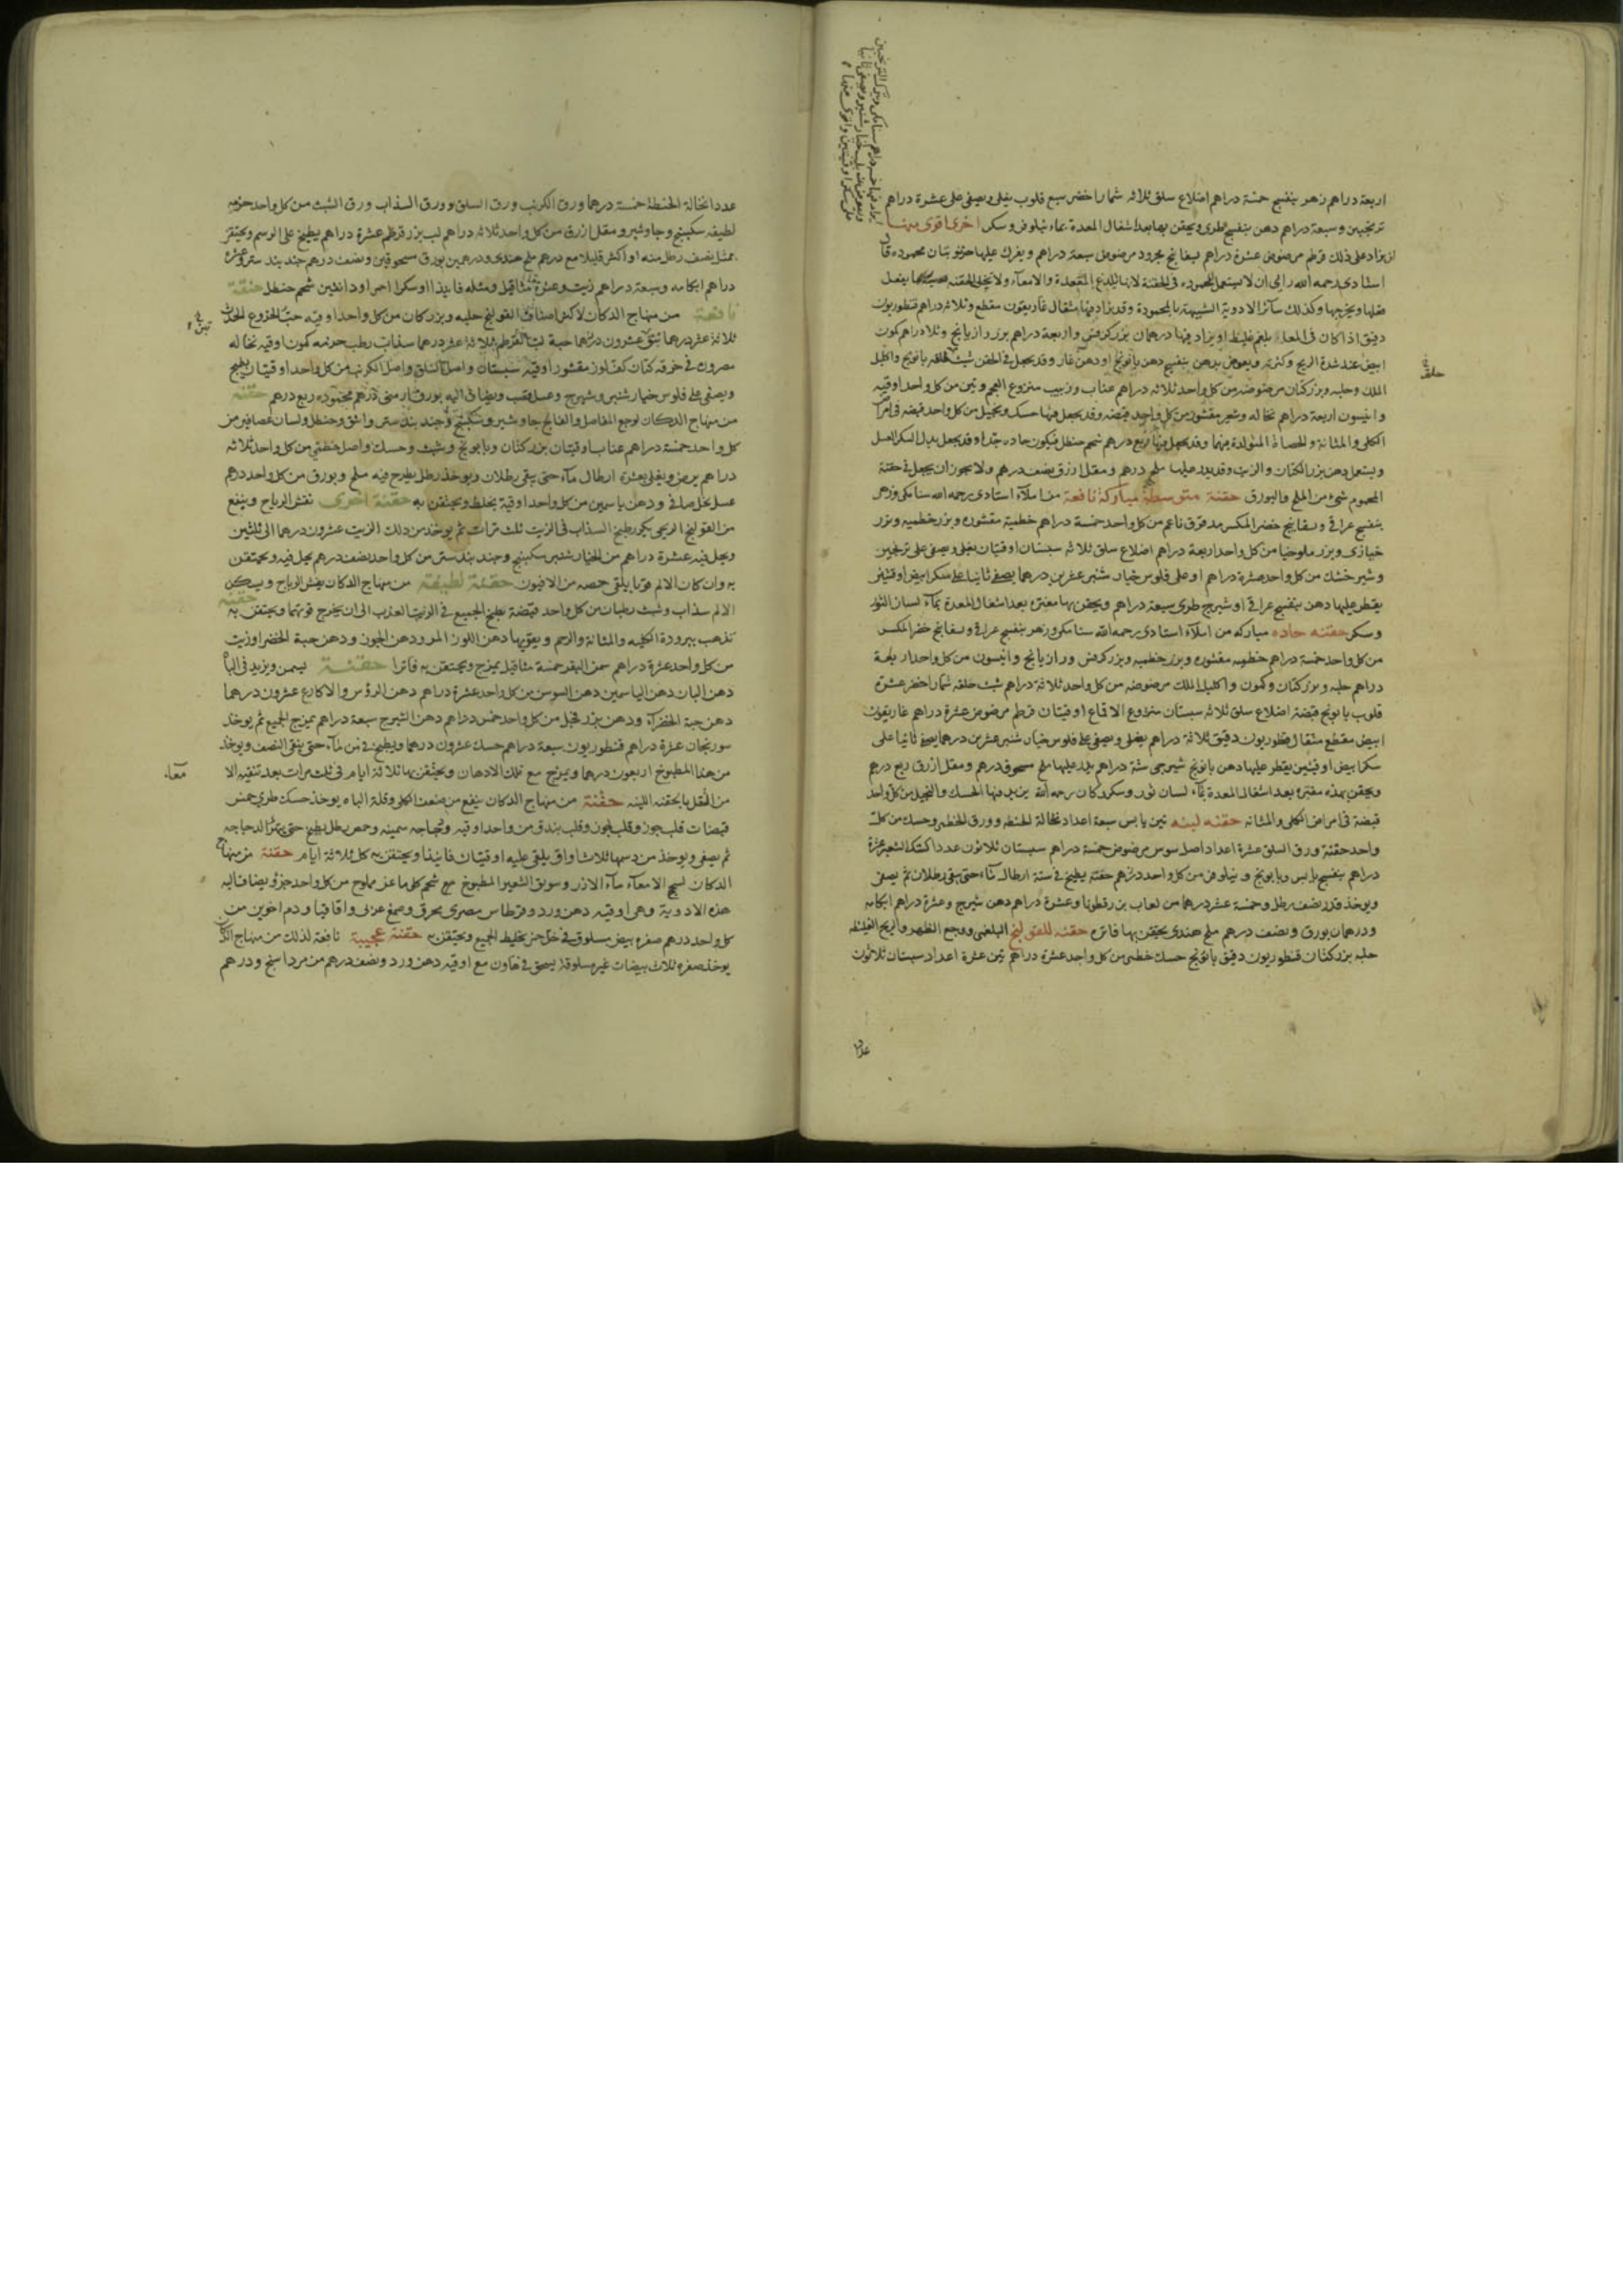 اربعة دراهم زهر بنفسج خمسة دراهم اضلاع سلق ثلاثه شمار اخضر سبع قلوب يغلى ويصفى على عشرة دراهم
ترنجبين وسبعة دراهم دهن بنفسج طرى ويحقن بها بعد اشغال المعدة بماء نيلوفر وسكر اخرى اقوى منها
يزاد على ذلك قرطم مرضوض عشرة دراهم بسفايج مجرود مرضوض سبعة دراهم ويفرك عليها محموده قال
استادى رحمه الله راى ان لا يستعمل المحموده فى الحقنة لانها تلذع المقعدة والامعاء
وكذلك سائر الادوية الشبيهة بالمحمودة وقد يزاد فيها مثقال غاريقون مقطع وثلاثه دراهم قنطوريون
دقيق اذا كان فى المعدة بلغم غليظ او يزاد فيها درهمان بزر كرفس واربعة دراهم بزر رازيانج وثلاث دراهم كمون
ابيض عند شدة الريح وكثرته ويعوض بدهن بنفسج دهن بابونج او دهن غار وقد يجعل فى الحقن شبث حلقه بابونج واكليل
الملك وحلبه وبزر كتان مرضوضه من كل واحد ثلاثه دراهم عناب وزبيب منزوع العجم وتين من كل واحد اوقيه
وانيسون اربعة دراهم نخاله وشعير مقشور من كل واحد قبضه وقد يجعل فيها حسك من كل واحد قبضه فى امراض
الكلى والمثانة والحصاة المتولدة فيهما وقد يجعل فيها ربع درهم شحم حنظل فيكون حاده جدا وقد يجعل بدل السكر العسل
ويستعمل دهن بزر الكتان والزيت وقد يذر عليها ملح درهم ومقل ازرق نصف درهم ولا يجوز ان يجعل فى حقنة
المحموم شئ من الملح والبورق حقنة متوسطة مباركة نافعة من املاء استادى رحمه الله سنا مكى وزهر
بنفسج عراقى وبسفايج خضر المكسر مدقوق ناعم من كل واحد خمسة دراهم خطمية مقشوره وبزر خطميه وبزر
خبازى وبزر ملوخيا من كل واحد اربعة دراهم اضلاع سلق ثلاثه سبستان اوقيتان يغلى ويصفى على ترنجبين
وشيرخشك من كل واحد عشرة دراهم او على فلوس خيار شنبر عشرين درهما يصفى ثانيا على سكر ابيض اوقيتين
يقطر عليها دهن بنفسج عراقى او شيرج طرى سبعة دراهم ويحقن بها مفتره بعد اشغال المعدة بماء لسان الثور
وسكر حقنه حاده مباركه من املاء استادى رحمه الله سنا مكى وزهر بنفسج عراقى وبسفايج خضر المكسر
من كل واحد خمسة دراهم خطميه مقشوره وبزر خطميه وبزر كرفس ورازيانج وانيسون من كل واحد اربعة
دراهم حلبه وبزر كتان وكمون واكليل الملك مرضوضه من كل واحد ثلاثة دراهم شبث حلقه شمار اخضر عشرة
قلوب بابونج قبضة اضلاع سلق ثلاثه سبستان منزوع الاقماع اوقيتان قرطم مرضوض عشرة دراهم غاريقون
ابيض مقطع مثقال قنطوريون دقيق ثلاثة دراهم يغلى ويصفى على فلوس خيار شنبر عشرين درهما يصفى ثانيا على
سكر ابيض اوقيتين يقطر عليها دهن بابونج شيرجى ستة دراهم يذر عليها ملح مسحوق درهم ومقل ازرق ربع درهم
ويحقن بهذه مفتره بعد اشغال المعدة بماء لسان ثور وسكر وكان رحمه الله يزيد فيها الحسك من كل واحد
قبضة فى امراض الكلى والمثانه حقنه لينه تين يابس سبعة اعداد نخالة الحنطه وورق الخطمى وحسك من كل
واحد حفنة ورق السلق عشرة اعداد اصل سوس مرضوض خمسة دراهم سبستان ثلاثون عددا كشك الشعير عشرة
دراهم بنفسج يابس وبابونج ونيلوفر من كل واحد درهم حفنه يطبخ فى ستة ارطال ماء حتى يبقى رطلان ثم يصفى
ويوخذ قدر نصف رطل وخمسة عشر درهما من لعاب بزر قطونا وعشرة دراهم دهن شيرج وعشرة دراهم ابكامه
ودرهمان بورق ونصف درهم ملح هندى يحقن بها فاتره حقنه للقولنج البلغمى ووجع الظهر والريح الغليظه
حلبه بزر كتان قنطوريون دقيق بابونج حسك خطمى من كل واحد عشرة دراهم تين عشرة اعداد سبستان ثلاثون
عددا
عددا نخالة الحنطة خمسة درهما ورق الكرنب ورق السلق وورق السذاب ورق الشبث من كل واحد حزمه
لطيفه سكبينج وجاوشير ومقل ازرق من كل واحد ثلاثة دراهم لب بزر قرطم عشرة دراهم يطبخ على الرسم ويحتقن
بمثل نصف رطل منه او اكثر قليلا مع درهم ملح هندى ودرهمين بورق مسحوقين ونصف درهم جندبيدستر وعشرة
دراهم ابكامه وسبعة دراهم زيت وعشرة مثاقيل ومثله فانيذا او سكرا احمر او دانقين شحم حنظل حقنة
نافعة من منهاج الدكان لاكثر اصناف القولنج حلبه وبزر كتان من كل واحد اوقيه حب الخروع الحديث
ثلاثة عشر درهما تين عشرون درهما حبة لب القرطم ثلاثة عشر درهما سذاب رطب حزمه كمون اوقيه نخاله
مصروره فى خرقه كتان كف لوز مقشور اوقيه سبستان واصل السلق واصل الكرنب من كل واحد اوقيتان يطبخ
ويصفى على فلوس خيار شنبر وشيرج وعسل قصب ويضاف اليه بورق ارمنى درهم محموده ربع درهم حقنه
من منهاج الدكان لوجع المفاصل والفالج جاوشير وسكبينج وجندبيدستر واشق وحنظل ولسان عصافير من
كل واحد خمسة دراهم عناب اوقيتان بزر كتان وبابونج وشبث وحسك واصل خطمى من كل واحد ثلاثه
دراهم يرض ويغلى بعشرة ارطال ماء حتى يبقى رطلان ويوخذ رطل يطرح فيه ملح وبورق من كل واحد درهم
عسل نحل صافى ودهن ياسمين من كل واحد اوقية يخلط ويحتقن به حقنة اخرى تفش الرياح وينفع
من القولنج الريحى يكرر طبخ السذاب فى الزيت ثلث مرات ثم يوخذ من ذلك الزيت عشرون درهما الى ثلثين
ويحل فيه عشرة دراهم من الخيار شنبر سكبينج وجندبيدستر من كل واحد نصف درهم يحل فيه ويحتقن
به وان كان الالم قويا يلقى حمصه من الافيون حقنة لطيفة من منهاج الدكان يفش الرياح ويسكن
الالم سذاب وشبث رطبان من كل واحد قبضة يطبخ الجميع فى الزيت العذب الى ان يخرج قوتهما ويحتقن به حقنه
تذهب ببرودة الكليه والمثانة والرحم ويقويها دهن اللوز المر ودهن الجوز ودهن حبة الخضرا وزيت
من كل واحد عشرة دراهم سمن البقر خمسة مثاقيل يمزج ويحتقن به فاترا حقنة يسمن ويزيد فى الباه
دهن البان دهن الياسمين دهن السوسن من كل واحد عشرة دراهم دهن الرؤس والاكارع عشرون درهما
دهن حبة الخضراء ودهن بزر فجل من كل واحد خمس دراهم دهن الشيرج سبعة دراهم يمزج الجميع ثم يوخذ
سورنجان عشرة دراهم قنطوريون سبعة دراهم حسك عشرون درهما ويطبخ فى من الماء حتى يبقى النصف ويوخذ
من هذا المطبوخ اربعون درهما ويمزج مع تلك الادهان ويحتقن بها ثلاثة ايام فى ثلث مرات بعد تنقية الامعاء
من الثقل بالحقنه اللينه حقنة من منهاج الدكان ينفع من ضعف الكلى وقلة الباه يوخذ حسك طرى خمس
قبضات قلب جوز وقلب لوز وقلب بندق من واحد اوقيه ودجاجه سمينه وحمص رطل يطبخ حتى يتهرا الدجاجه
ثم يصفى ويوخذ من دسمها ثلاث اواق يلقى عليه اوقيتان فانيذا ويحتقن به كل ثلاثة ايام حقنة من منهاج
الدكان لسحج الامعاء ماء الارز وسويق الشعير المطبوخ مع شحم كلى ماعز مملوح من كل واحد جزؤ ويضاف اليه
هذه الادوية وهى اوقيه دهن ورد وقرطاس مصرى محرق وصمغ عربى واقاقيا ودم اخوين من
كل واحد درهم صفره بيض مسلوق فى خل خمر يخلط الجميع ويحتقن به حقنة عجيبة نافعة لذلك من منهاج الدكان
يوخذ صفره ثلاث بيضات غير مسلوقة يسحق فى هاون مع اوقيه دهن ورد ونصف درهم من مرداسنج ودرهم